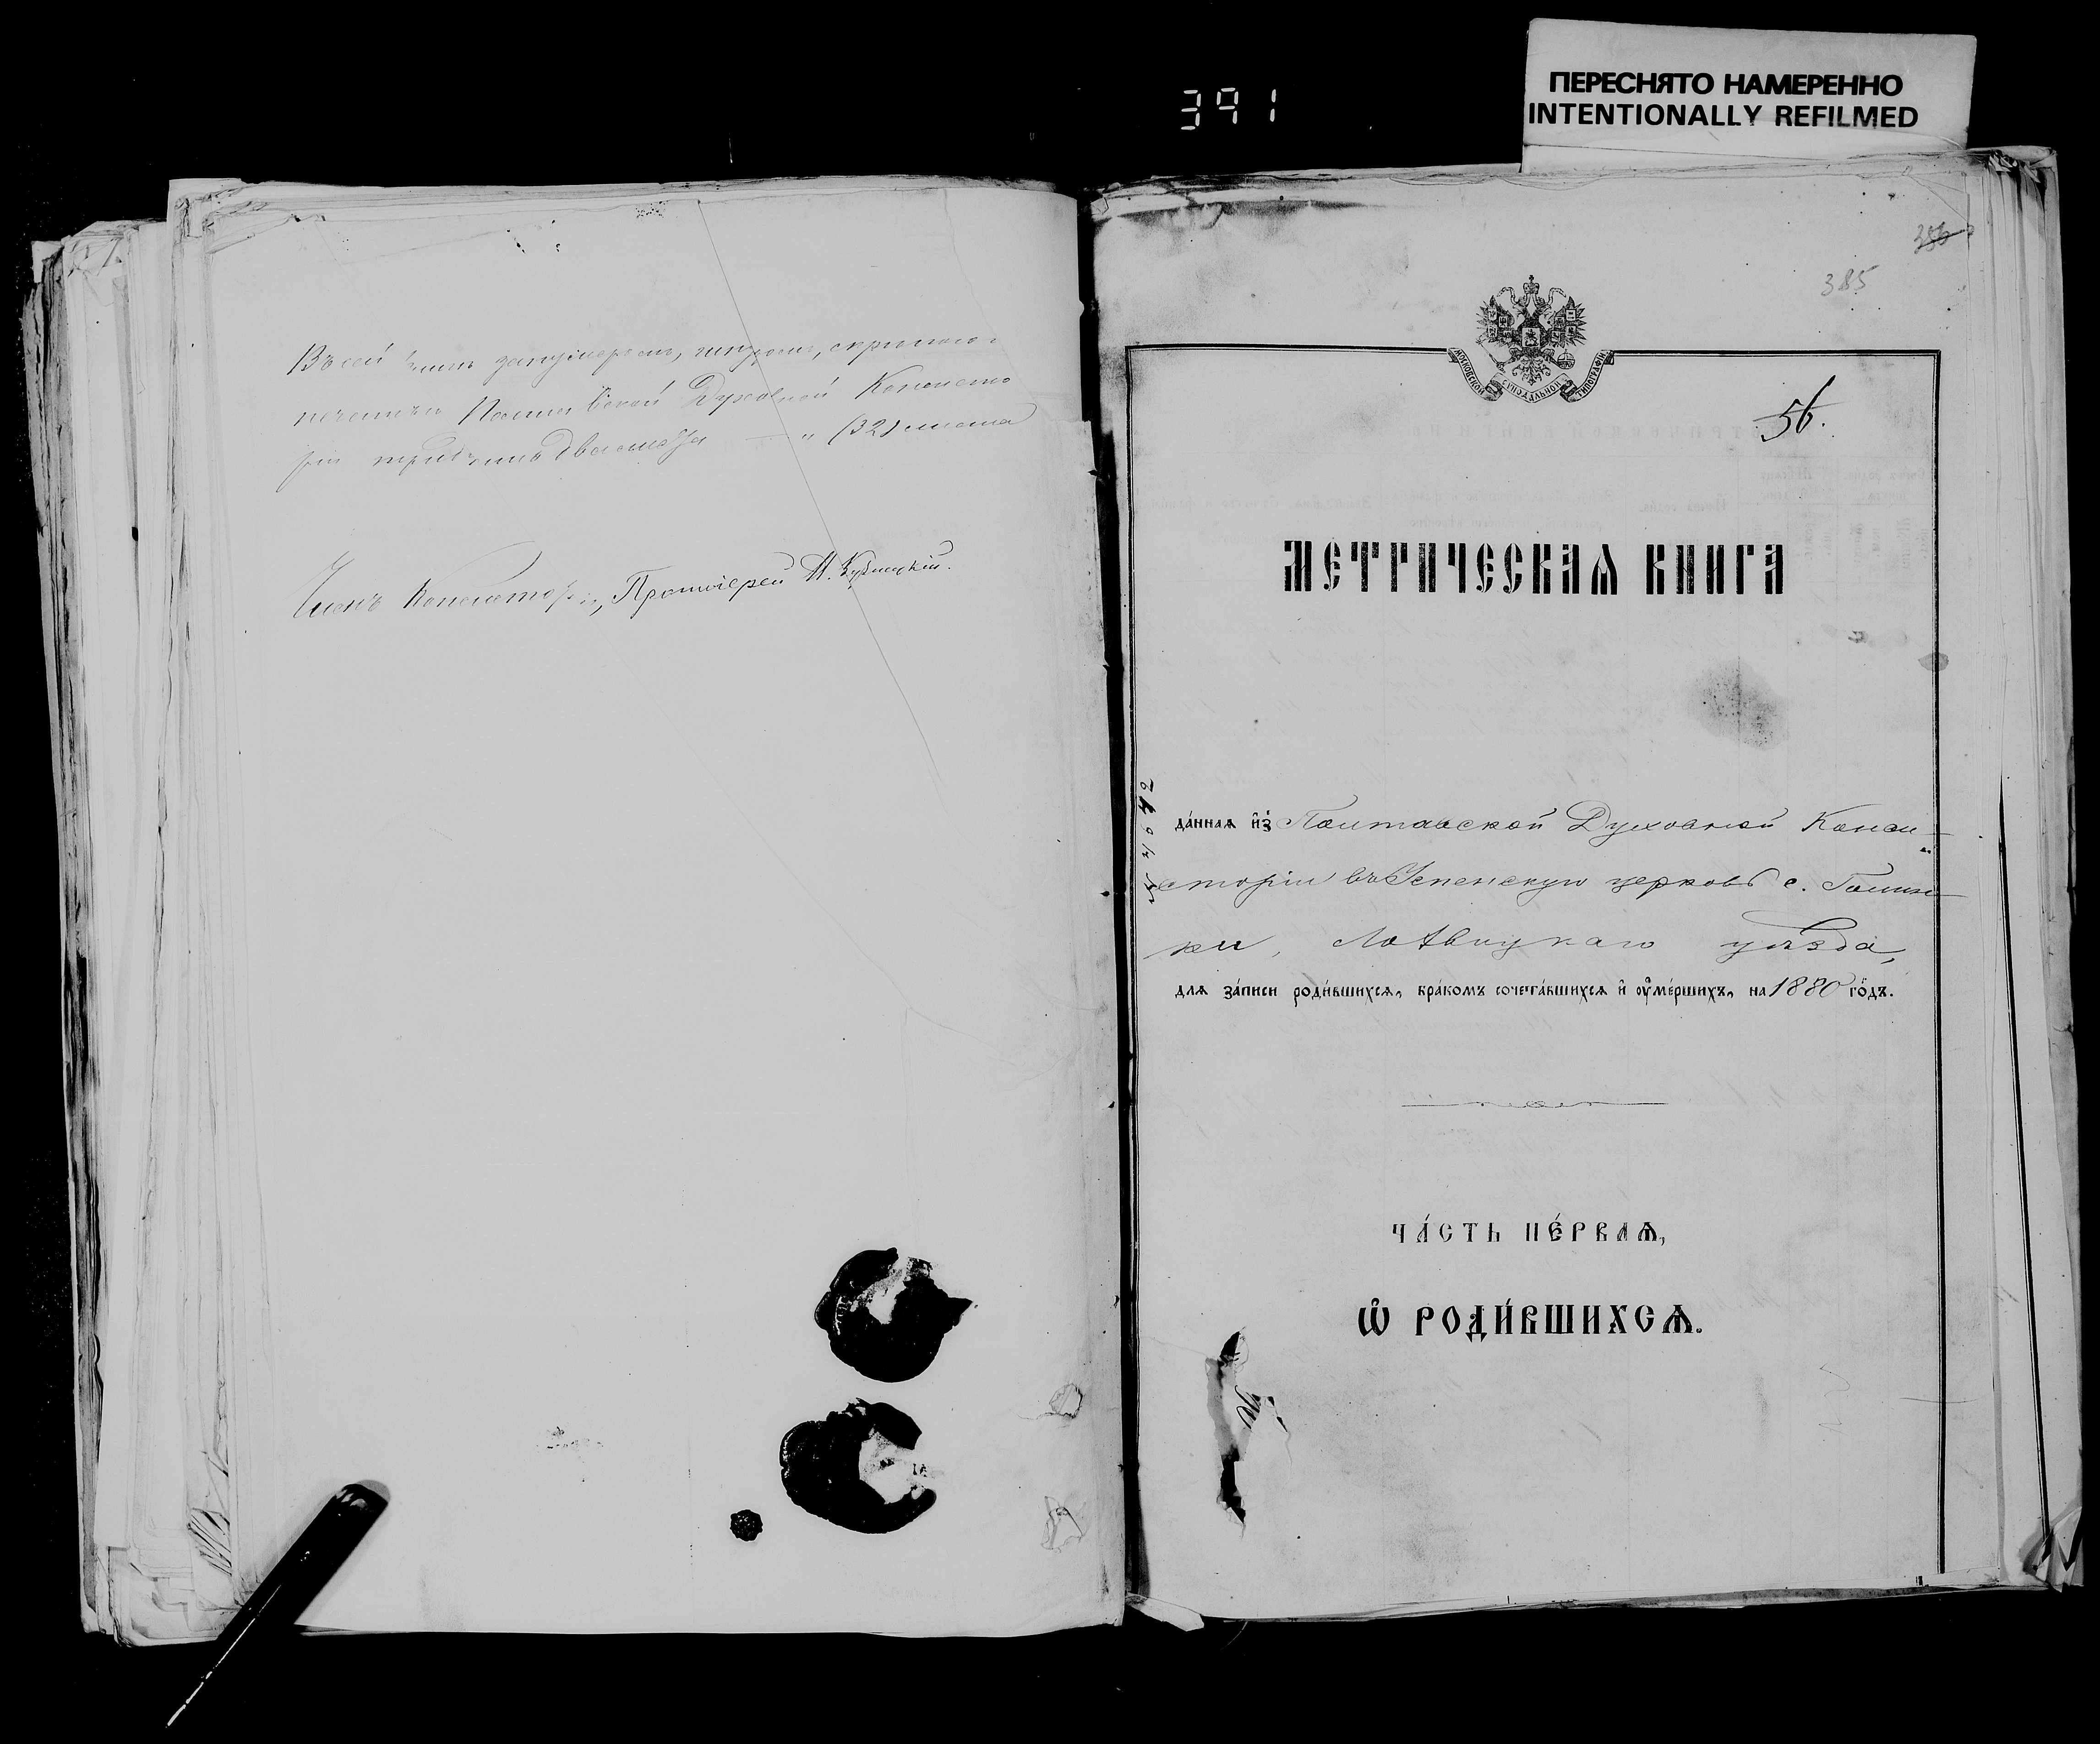 ПЕРЕСНЯТО НАМЕРЕННО
INTENTIONALLY REFILMED
391
Въ сей книгѣ занумерован, шнуром, скрѣплено и
печатью Полтавской Духовной Консисто
ріи тридцать два листа (32) листа
Членъ Консисторіи, Протоіерей
386
385
МОСКОВСКОЙ СѴНОДАЛЬНОЙ ТИПОГРАФІИ
56.
МЕТРИЧЕСКАѦ КНИГА
да́ннаѧ и҆з̾ Полтавской Духовной Конси-
сторіи въ Успенскую церковь с.
ки, Лохвицкаго уѣзда,
длѧ за́писи роди́вшихсѧ, бра́комъ сочета́вшихсѧ и҆ ᲂу҆ме́ршихъ, на 1880 го́дъ.
ЧА́СТЬ ПЕ́РВАѦ,
Ѽ РОДИ́ВШИХСѦ.